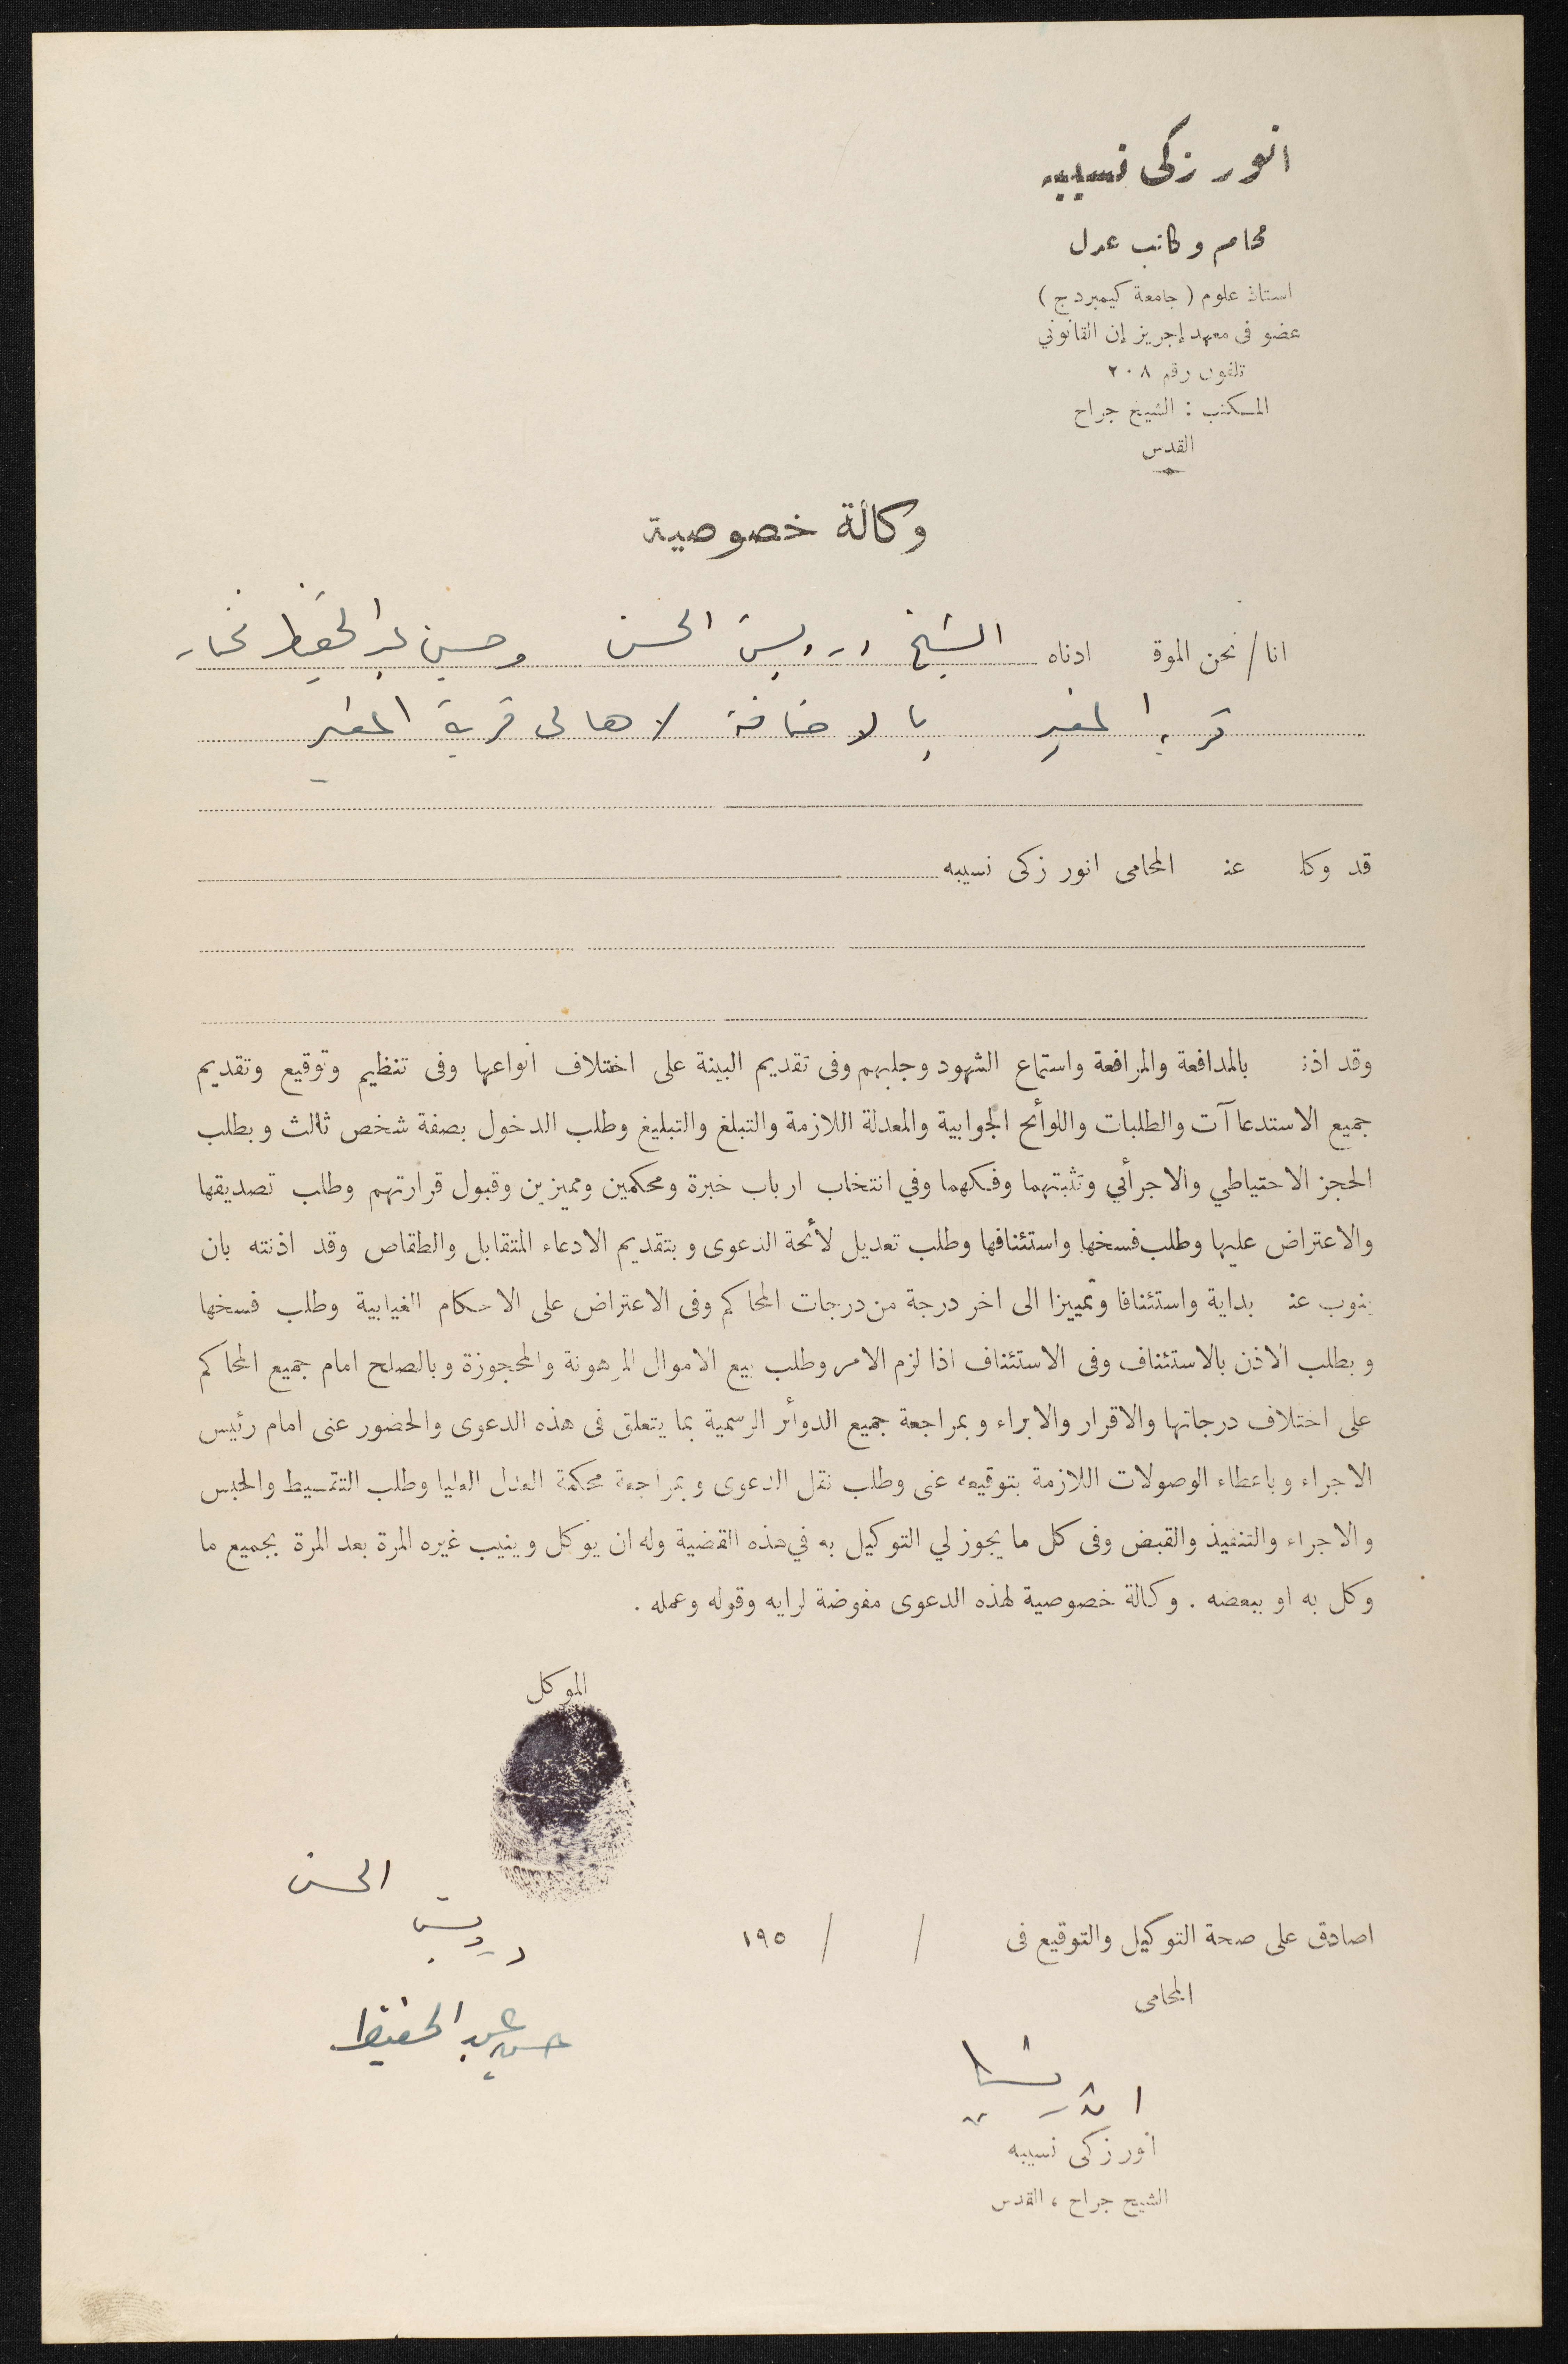 انور زكى نسيبه
محام وكاتب عدل
استاذ علوم ( جامعة كيمبردج )
عضو فى معهد إجريز إن القانوني
تلفون رقم ٢٠٨
المكتب : الشيخ جراح
القدس
وكالة خصوصية
انا / نحن الموقـ ادناه الشيخ درويش الحسن وحسين عبد الحفيظ مختار
قرية المغير بالاضافة لاهالى قرية المغير
قد وكلـ عنـ المحامى انور زكى نسيبه
وقد اذنـ بالمدافعة والمرافعة واستماع الشهود وجلبهم وفى تقديم البينة على اختلاف انواعها وفى تنظيم وتوقيع وتقديم
جميع الاستدعاآت والطلبات واللوأئح الجوابية والمعدلة اللازمة والتبلغ والتبليغ وطلب الدخول بصفة شخص ثالث وبطلب
الحجز الاحتياطي والاجرأئي وتثبتهما وفكهما وفي انتخاب ارباب خبرة ومحكمين ومميزين وقبول قرارتهم وطلب تصديقها
والاعتراض عليها وطلب فسخها واستئنافها وطلب تعديل لأئحة الدعوى وبتقديم الادعاء المتقابل والطقاص وقد اذنته بان
ينوب عنـ بداية واستئنافا وتمييزا الى اخر درجة من درجات المحاكم وفى الاعتراض على الاحكام الغيابية وطلب فسخها
وبطلب الاذن بالاستئناف وفى الاستئناف اذا لزم الامر وطلب بيع الاموال المرهونة والمحجوزة وبالصلح امام جميع المحاكم
على اختلاف درجاتها والاقرار والابراء وبمراجعة جميع الدوأئر الرسمية بما يتعلق فى هذه الدعوى والحضور عنى امام رئيس
الاجراء وباعطاء الوصولات اللازمة بتوقيعه عنى وطلب نقل الدعوى وبمراجعة محكمة العدل العليا وطلب التقسيط والحبس
والاجراء والتنفيذ والقبض وفى كل ما يجوز لي التوكيل به في هذه القضية وله ان يوكل وينيب غيره المرة بعد المرة بجميع ما
وكل به او ببعضه . وكالة خصوصية لهذه الدعوى مفوضة لرايه وقوله وعمله .
الموكل
الحسن
درويش
حسين عبد الحفيظ
اصادق على صحة التوكيل والتوقيع فى / / ١٩٥
المحامى
انور زكى نسيبه
الشيخ جراح ، القدس